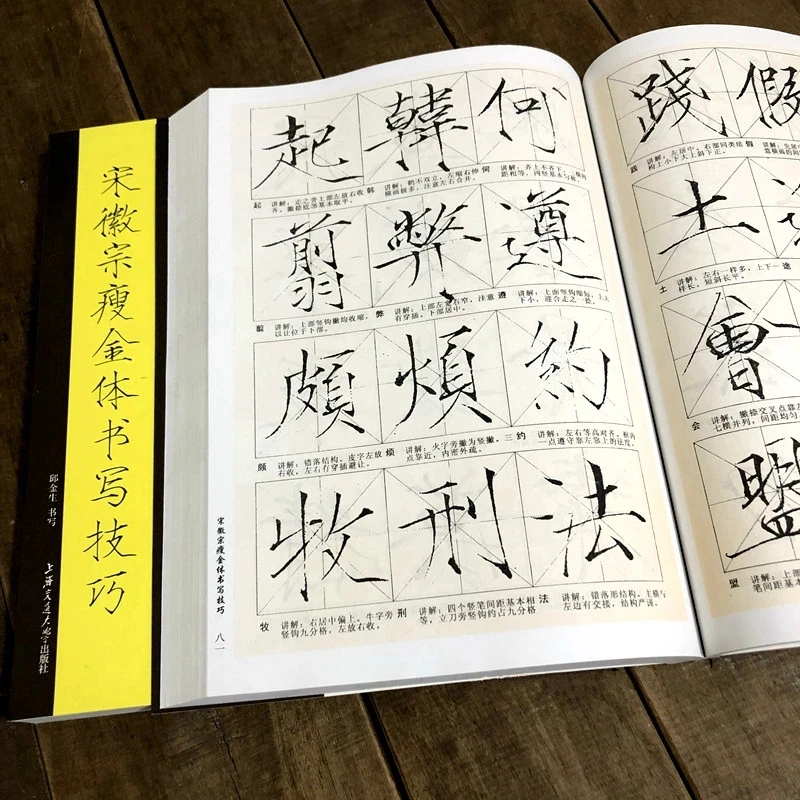 宋徽宗瘦金体书写技巧
邱金生 书写
上海交通大学出版社
起 韩 何
起 讲解：走之旁上部左放右收，撇捺底部基本取平。
韩 讲解：鹤不双立，左缩右伸，横画极多，注意左右合并。
何
翦 弊 遵
翦 讲解：上部竖钩撇均收缩，以让位于下部。
弊 讲解：上部左宽右窄，注意有穿插，下部居中。
遵 讲解：上面竖钩缩短，上大下小，迎合走之一捺。
頗 煩 約
颇 讲解：错落结构，皮字左放右收，左右有穿插避让。
烦 讲解：火字旁撇为竖撇，三点靠近，内密外疏。
约 讲解：左右等高对齐，框内一点遵守靠左靠上的法度。
牧 刑 法
牧 讲解：右居中偏上，牛字旁竖钩九分格，左放右收。
刑 讲解：四个竖笔间距基本相等，立刀旁竖钩约占九分格
法 讲解：错落形结构，主横与左边有交接，结构严谨。
宋徽宗瘦金体书写技巧
八一
踐 假
践 讲解：左居中，右部同类给构上小下大上斜下正。
假
土
土 讲解：左右一样多，上下一样长，短斜长平。
途
會
会 讲解：撇捺交叉点靠
七横并列，间距均匀
盟
盟 讲解：上部
笔间距基本